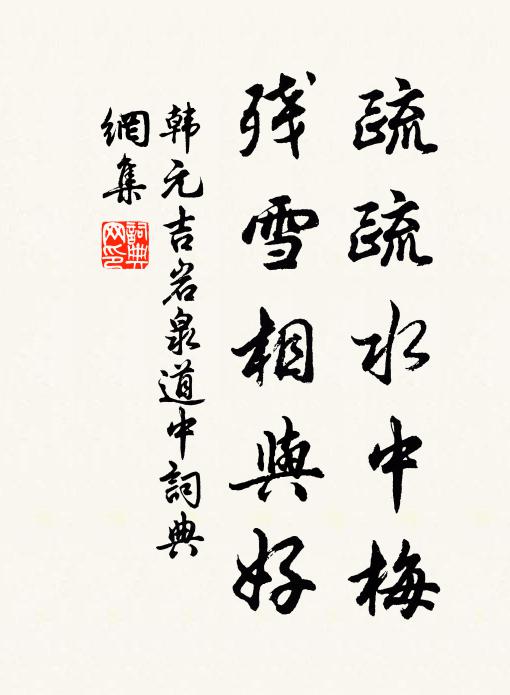 疏疏水中梅
残雪相與好
韩元吉岩泉道中詞典
網集
詞典
网印